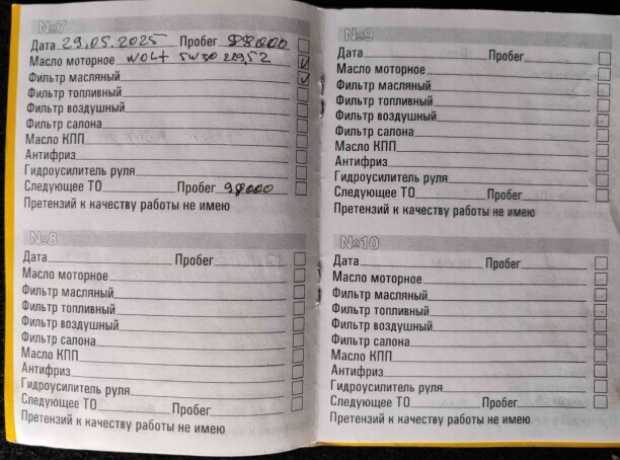 №7
Дата 29.05.2025 Пробег 88000
Масло моторное WOLF 5W30 229,52
Фильтр масляный
Фильтр топливный
Фильтр воздушный
Фильтр салона
Масло КПП
Антифриз
Гидроусилитель руля
Следующее ТО Пробег 98000
Претензий к качеству работы не имею
№8
Дата Пробег
Масло моторное
Фильтр масляный
Фильтр топливный
Фильтр воздушный
Фильтр салона
Масло КПП
Антифриз
Гидроусилитель руля
Следующее ТО Пробег
Претензий к качеству работы не имею
№9
Дата Пробег
Масло моторное
Фильтр масляный
Фильтр топливный
Фильтр воздушный
Фильтр салона
Масло КПП
Антифриз
Гидроусилитель руля
Следующее ТО Пробег
Претензий к качеству работы не имею
№10
Дата Пробег
Масло моторное
Фильтр масляный
Фильтр топливный
Фильтр воздушный
Фильтр салона
Масло КПП
Антифриз
Гидроусилитель руля
Следующее ТО Пробег
Претензий к качеству работы не имею